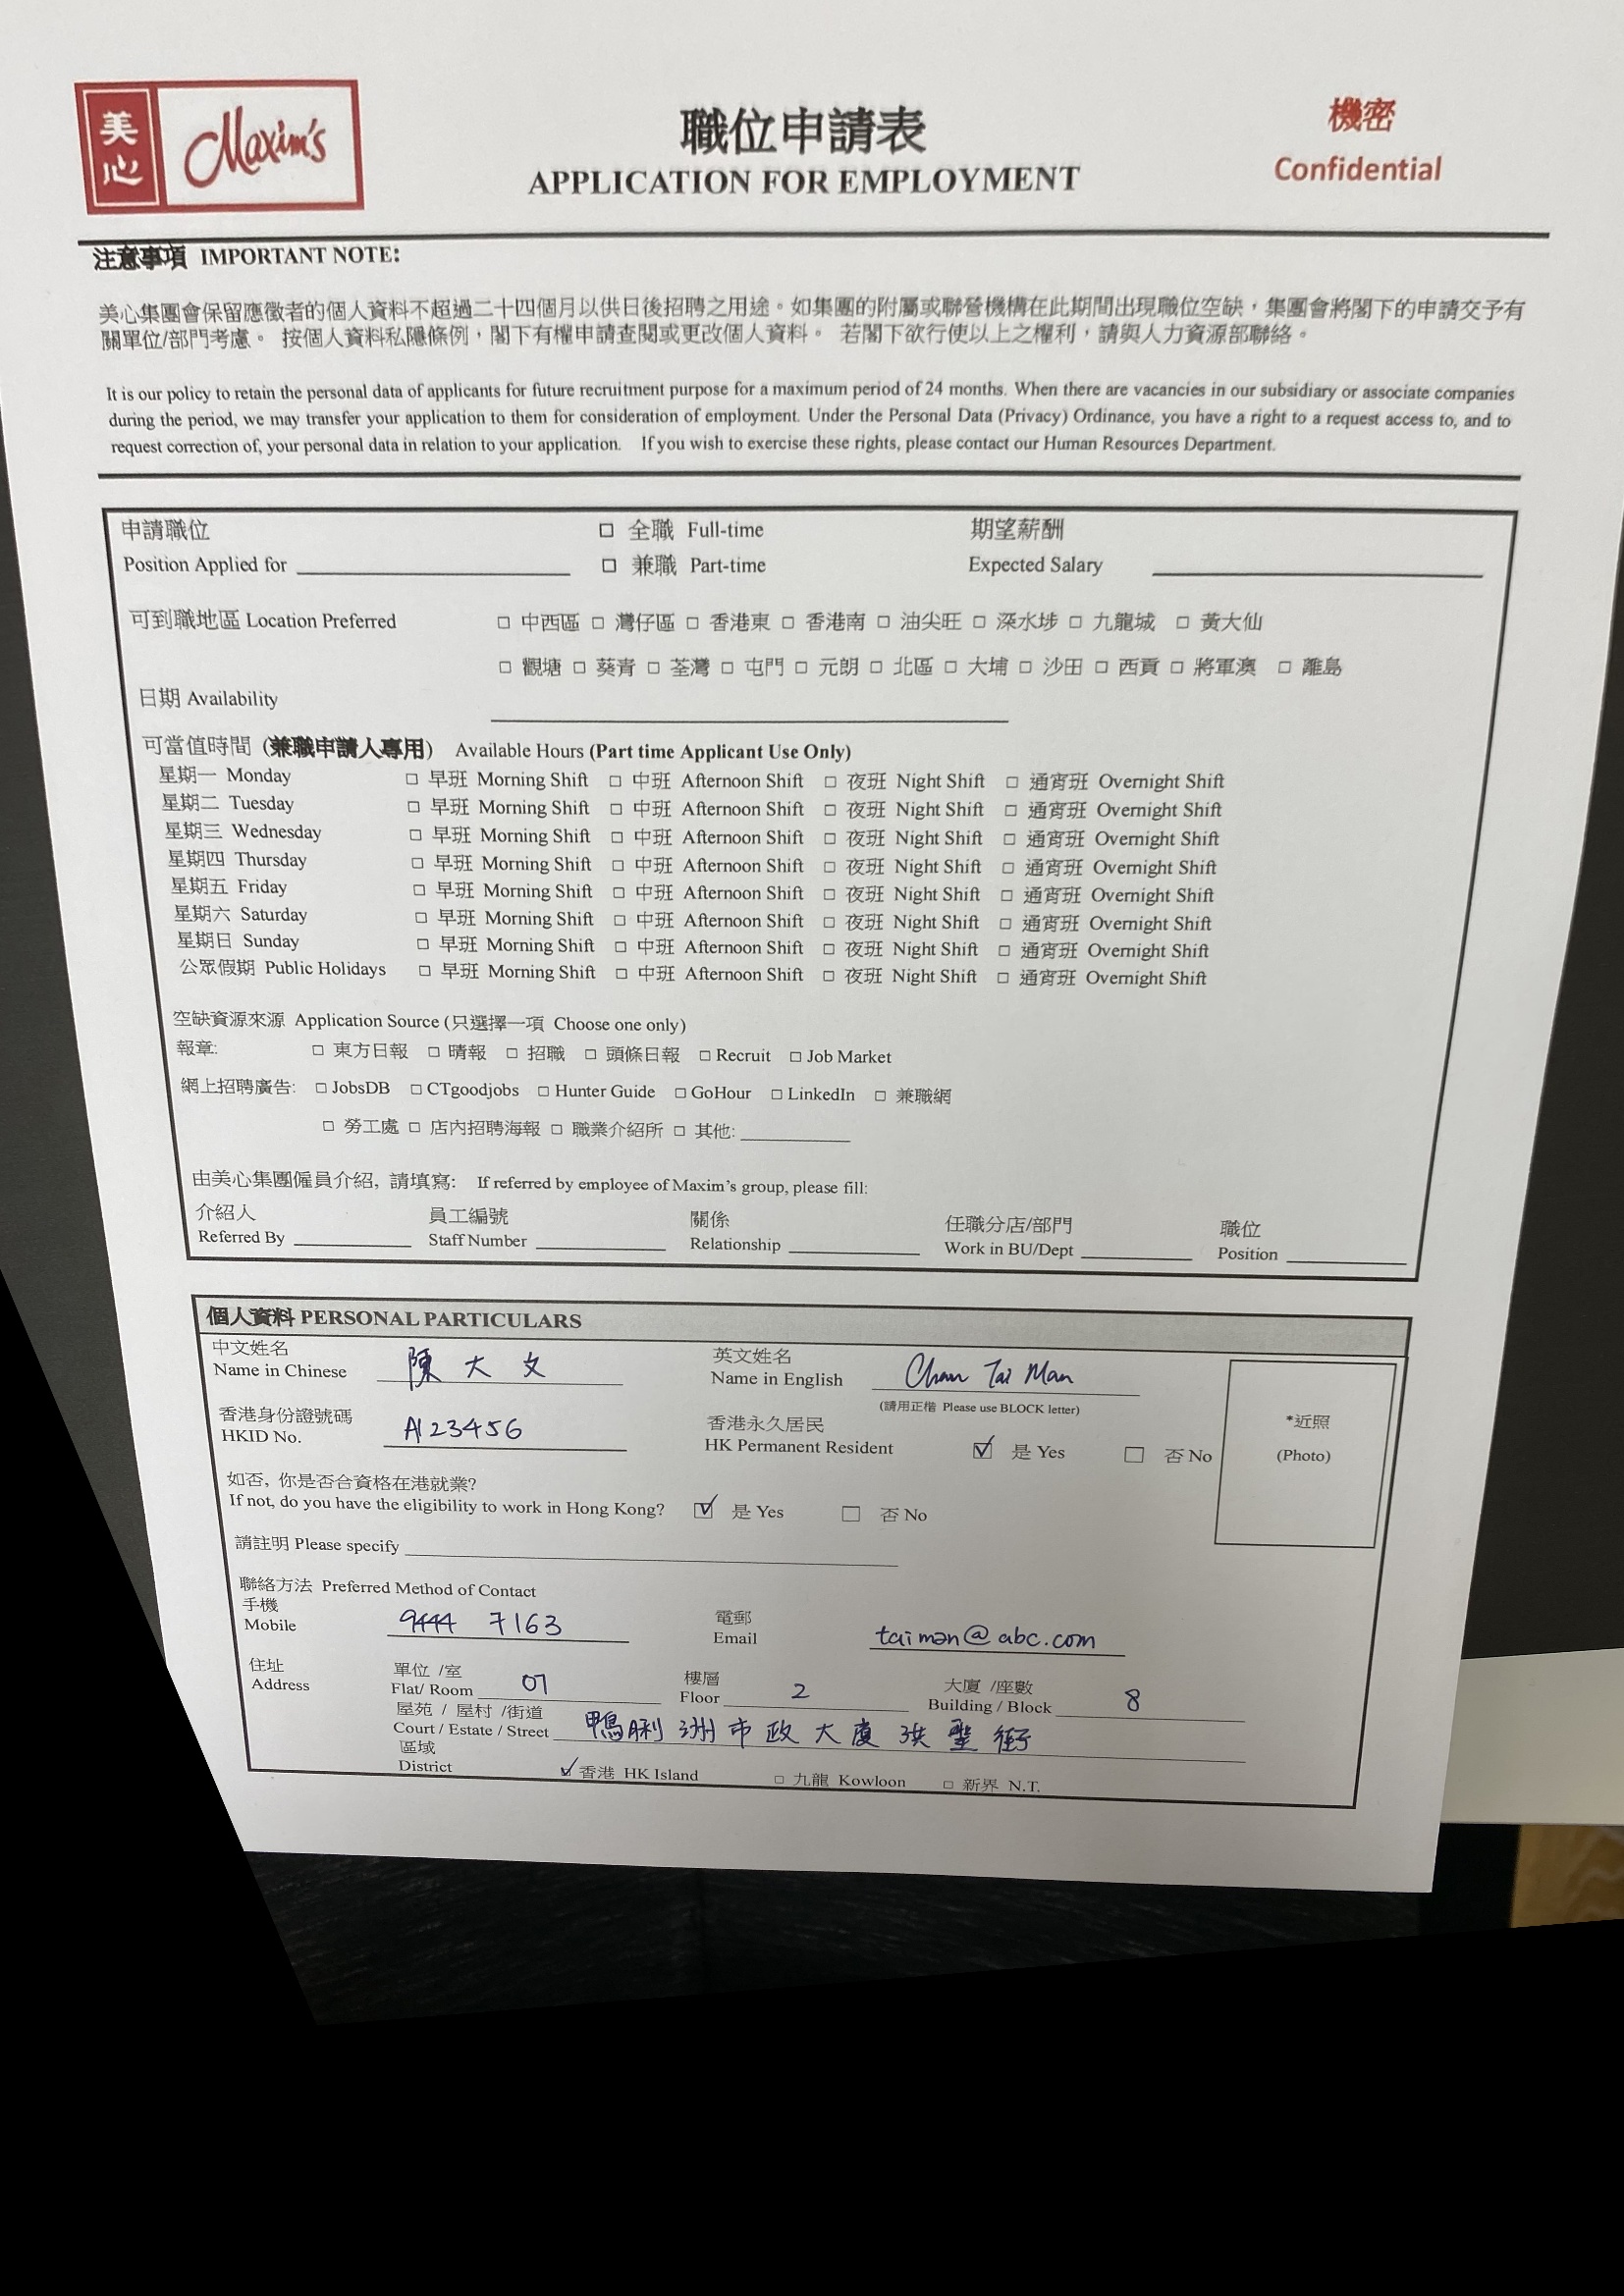 美心 Maxim's
職位申請表
APPLICATION FOR EMPLOYMENT
機密
Confidential
注意事項 IMPORTANT NOTE:
美心集團會保留應徵者的個人資料不超過二十四個月以供日後招聘之用途。如集團的附屬或聯營機構在此期間出現職位空缺，集團會將閣下的申請交予有
關單位/部門考慮。 按個人資料私隱條例，閣下有權申請查閱或更改個人資料。 若閣下欲行使以上之權利，請與人力資源部聯絡。
It is our policy to retain the personal data of applicants for future recruitment purpose for a maximum period of 24 months. When there are vacancies in our subsidiary or associate companies
during the period, we may transfer your application to them for consideration of employment. Under the Personal Data (Privacy) Ordinance, you have a right to a request access to, and to
request correction of, your personal data in relation to your application. If you wish to exercise these rights, please contact our Human Resources Department.
申請職位 □ 全職 Full-time 期望薪酬
Position Applied for □ 兼職 Part-time Expected Salary
可到職地區 Location Preferred □ 中西區 □ 灣仔區 □ 香港東 □ 香港南 □ 油尖旺 □ 深水埗 □ 九龍城 □ 黃大仙
□ 觀塘 □ 葵青 □ 荃灣 □ 屯門 □ 元朗 □ 北區 □ 大埔 □ 沙田 □ 西貢 □ 將軍澳 □ 離島
日期 Availability
可當值時間 (兼職申請人專用) Available Hours (Part time Applicant Use Only)
星期一 Monday □ 早班 Morning Shift □ 中班 Afternoon Shift □ 夜班 Night Shift □ 通宵班 Overnight Shift
星期二 Tuesday □ 早班 Morning Shift □ 中班 Afternoon Shift □ 夜班 Night Shift □ 通宵班 Overnight Shift
星期三 Wednesday □ 早班 Morning Shift □ 中班 Afternoon Shift □ 夜班 Night Shift □ 通宵班 Overnight Shift
星期四 Thursday □ 早班 Morning Shift □ 中班 Afternoon Shift □ 夜班 Night Shift □ 通宵班 Overnight Shift
星期五 Friday □ 早班 Morning Shift □ 中班 Afternoon Shift □ 夜班 Night Shift □ 通宵班 Overnight Shift
星期六 Saturday □ 早班 Morning Shift □ 中班 Afternoon Shift □ 夜班 Night Shift □ 通宵班 Overnight Shift
星期日 Sunday □ 早班 Morning Shift □ 中班 Afternoon Shift □ 夜班 Night Shift □ 通宵班 Overnight Shift
公眾假期 Public Holidays □ 早班 Morning Shift □ 中班 Afternoon Shift □ 夜班 Night Shift □ 通宵班 Overnight Shift
空缺資源來源 Application Source (只選擇一項 Choose one only)
報章: □ 東方日報 □ 晴報 □ 招職 □ 頭條日報 □ Recruit □ Job Market
網上招聘廣告: □ JobsDB □ CTgoodjobs □ Hunter Guide □ GoHour □ LinkedIn □ 兼職網
□ 勞工處 □ 店內招聘海報 □ 職業介紹所 □ 其他:
由美心集團僱員介紹, 請填寫: If referred by employee of Maxim's group, please fill:
介紹人 員工編號 關係 任職分店/部門 職位
Referred By Staff Number Relationship Work in BU/Dept Position
個人資料 PERSONAL PARTICULARS
中文姓名 英文姓名
Name in Chinese 陳大文 Name in English Chan Tai Man
(請用正楷 Please use BLOCK letter)
香港身份證號碼 香港永久居民
HKID No. A123456 HK Permanent Resident ☑ 是 Yes □ 否 No
*近照
(Photo)
如否, 你是否合資格在港就業?
If not, do you have the eligibility to work in Hong Kong? ☑ 是 Yes □ 否 No
請註明 Please specify
聯絡方法 Preferred Method of Contact
手機 電郵
Mobile 9444 7163 Email taiman@abc.com
住址 單位 /室 樓層 大廈 /座數
Address Flat/ Room 07 Floor 2 Building / Block 8
屋苑 / 屋村 /街道
Court / Estate / Street 鴨脷洲市政大廈洪聖街
區域
District ☑ 香港 HK Island □ 九龍 Kowloon □ 新界 N.T.